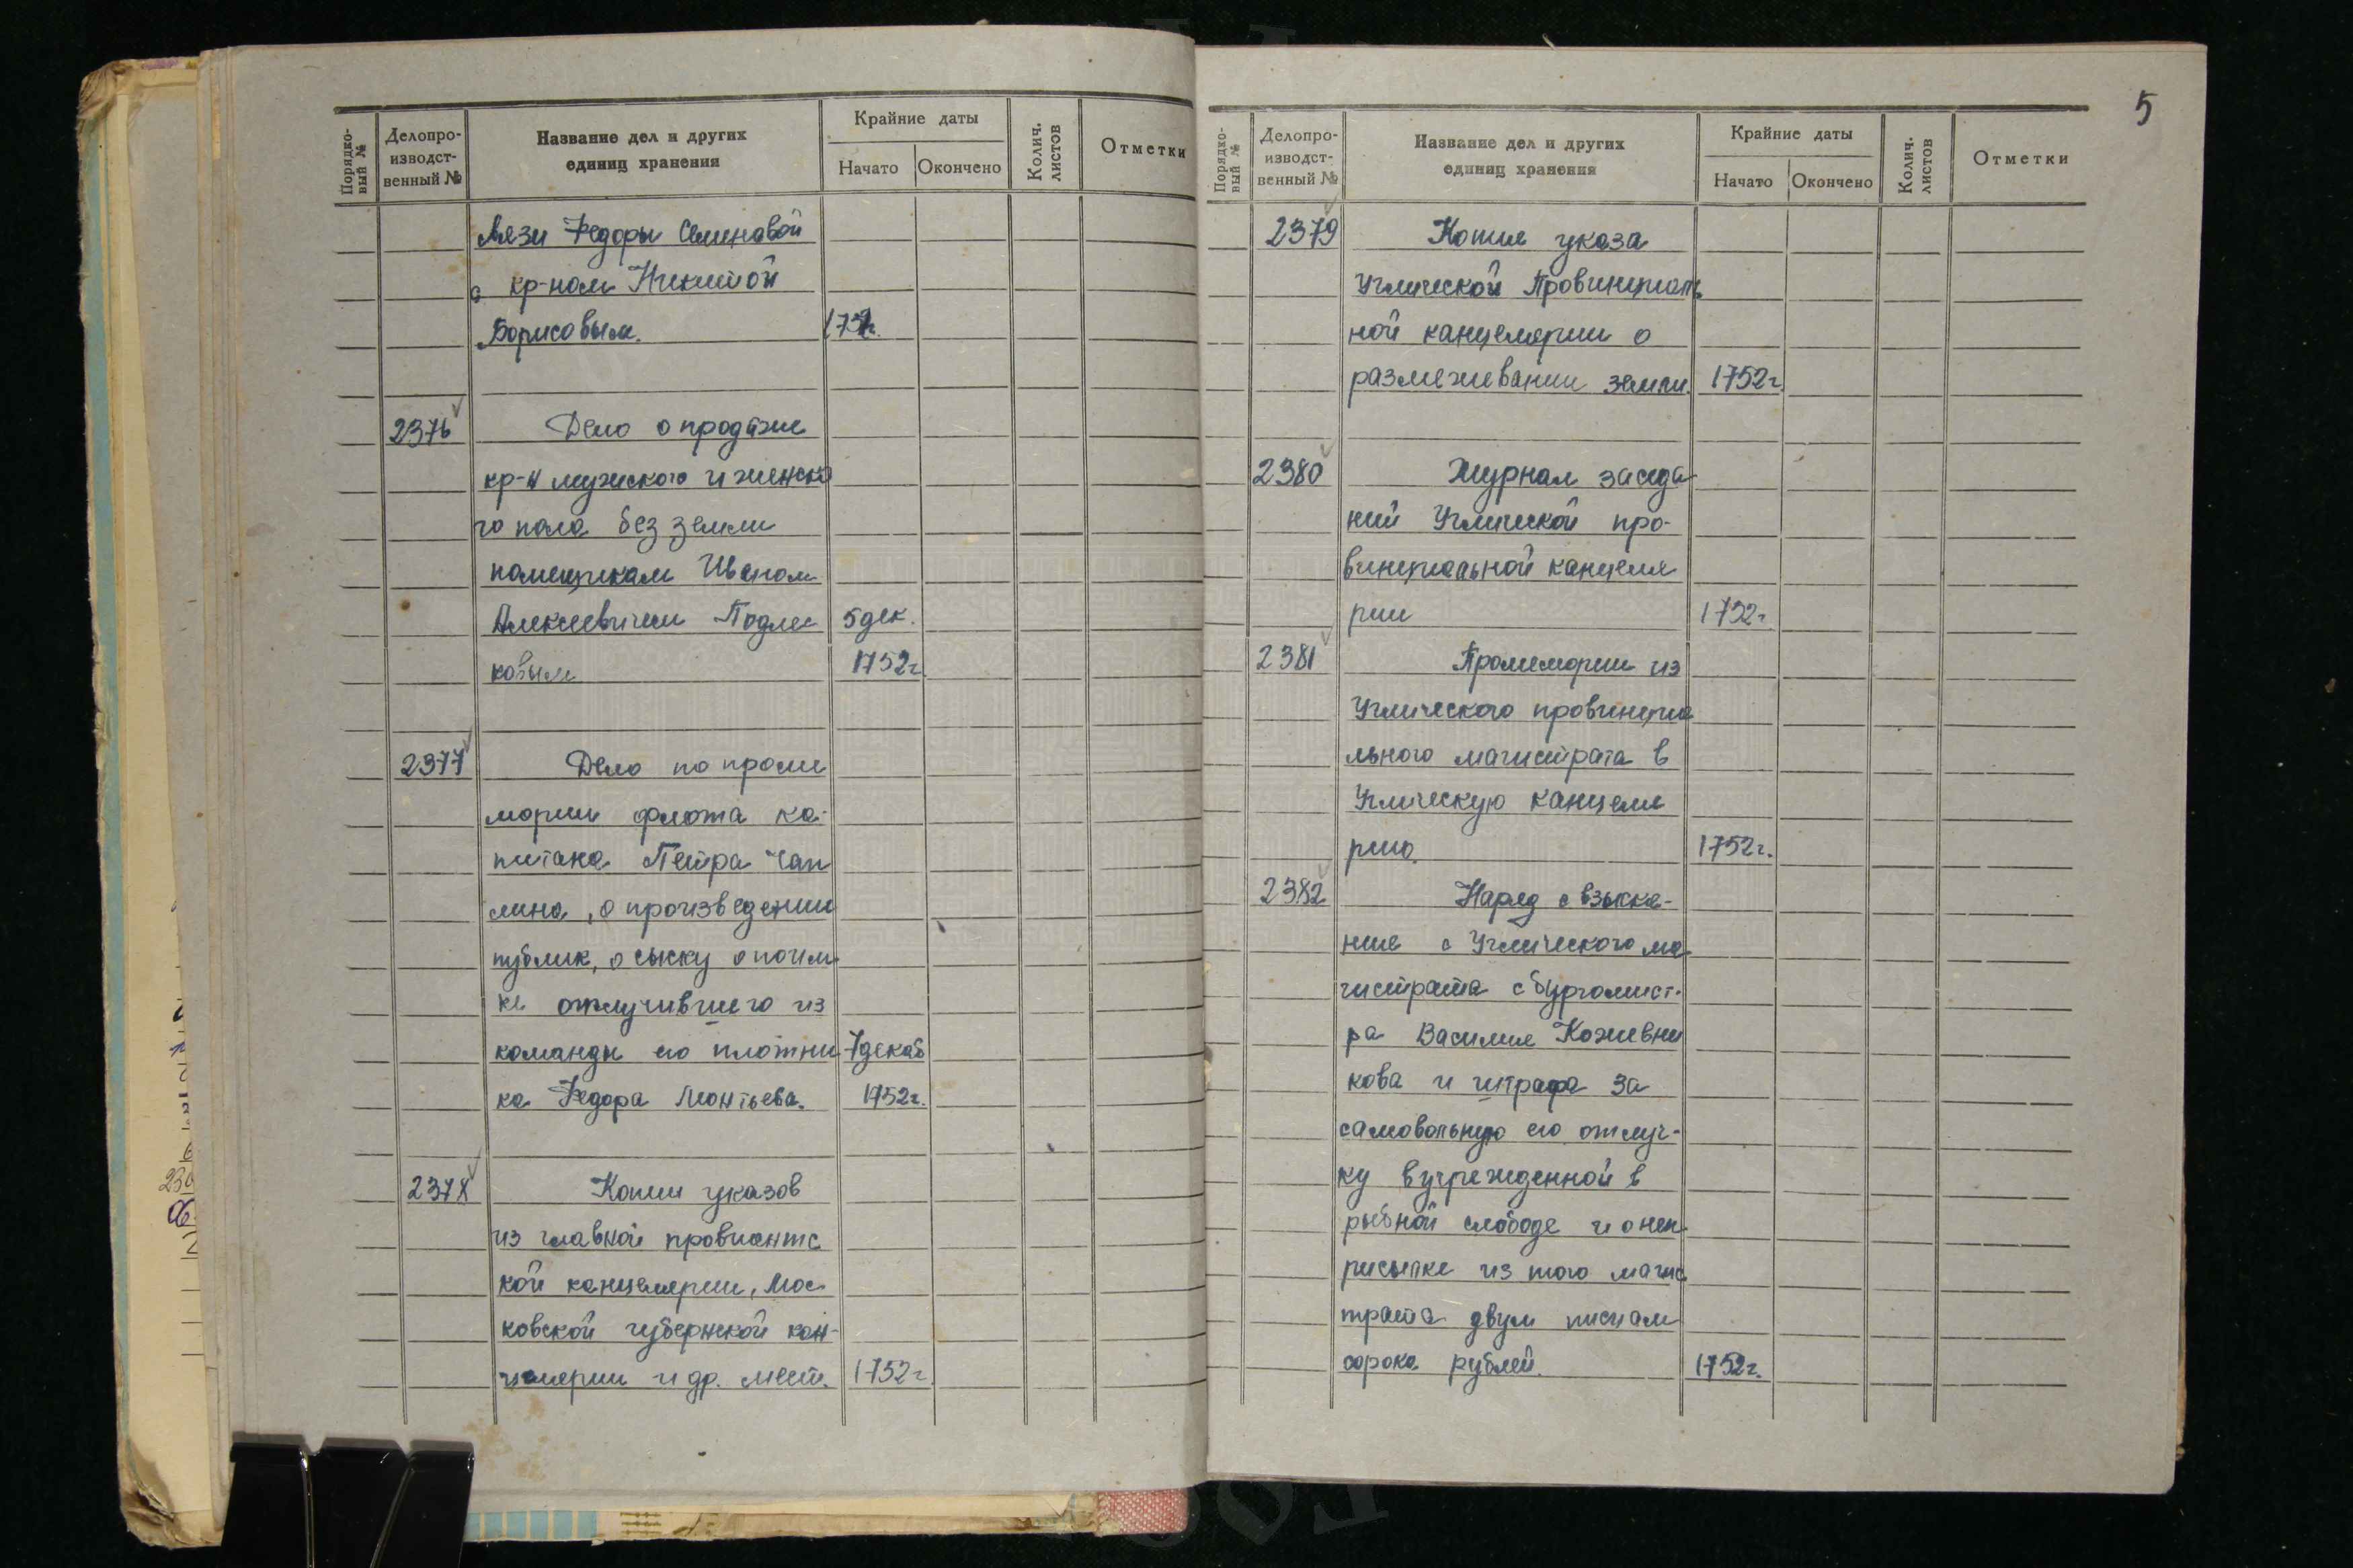 Порядко-
вый №
Делопро-
изводст-
венный №
Название дел и других
единиц хранения
Крайние даты
Начато
Окончено
Колич.
листов
Отметки
Федоры Семеновой
с кр-ном Никитой
Борисовым.
2376 Дело о продаже
кр-н мужского и женско
го пола без земли
помещиком Иваном
Алексеевичем Подле 5 дек.
ковым 1752г.
2377 Дело по проме
мории флота ка-
питана Петра Чап
лина, о произведении
публик, о сыску о поим
ке отлучившего из
команды его плотни 7 декаб
ка Федора Леонтьева. 1752г.
2378 Копии указов
из главной провиантс
кой канцелярии, Мос
ковской губернской кан-
целярии и др. мест. 1752г
5
Порядко-
вый №
Делопро-
изводст-
венный №
Название дел и других
единиц хранения
Крайние даты
Начато
Окончено
Колич.
листов
Отметки
2379 Копия указа
Угличской Провинциаль
ной канцелярии о
размежевании земли. 1752г.
2380 Журнал заседа
ний Угличской про-
винциальной канцеля
рии 1752г
2381 Промемории из
Угличского провинциа
льного магистрата в
Угличскую канцеля
рию. 1752г.
2382 Наряд о взыска-
ние с Угличского ма
гистрата с бургомист-
ра Василия Кожевни
кова и штрафа за
самовольную его отлуч-
ку в учрежденной в
рыбной слободе и о неп
рисылке из того магис
трата двум писчам
сорока рублей. 1752г.